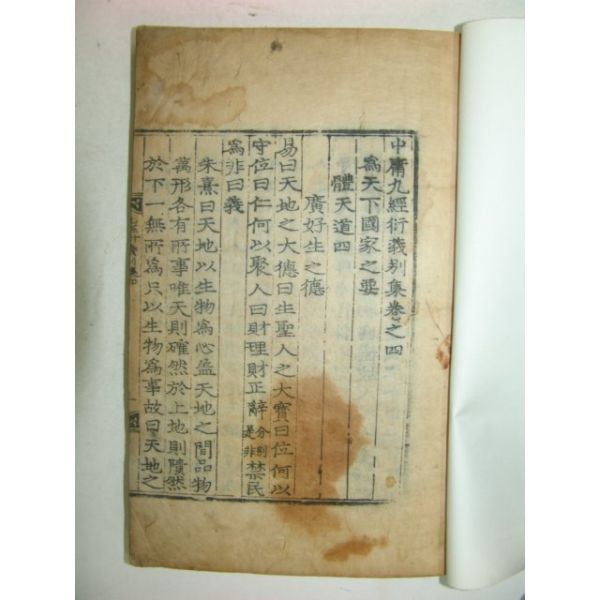 中庸九經衍義別集卷之四
爲天下國家之要
體天道四
廣好生之德
易曰天地之大德曰生聖人之大寶曰位何以
守位曰仁何以聚人曰財理財正辭分別是非禁民
爲非曰義
朱熹曰天地以生物爲心盈天地之間品物
萬形各有所事唯天則確然於上地則隤然
於下一無所爲只以生物爲事故曰天地之